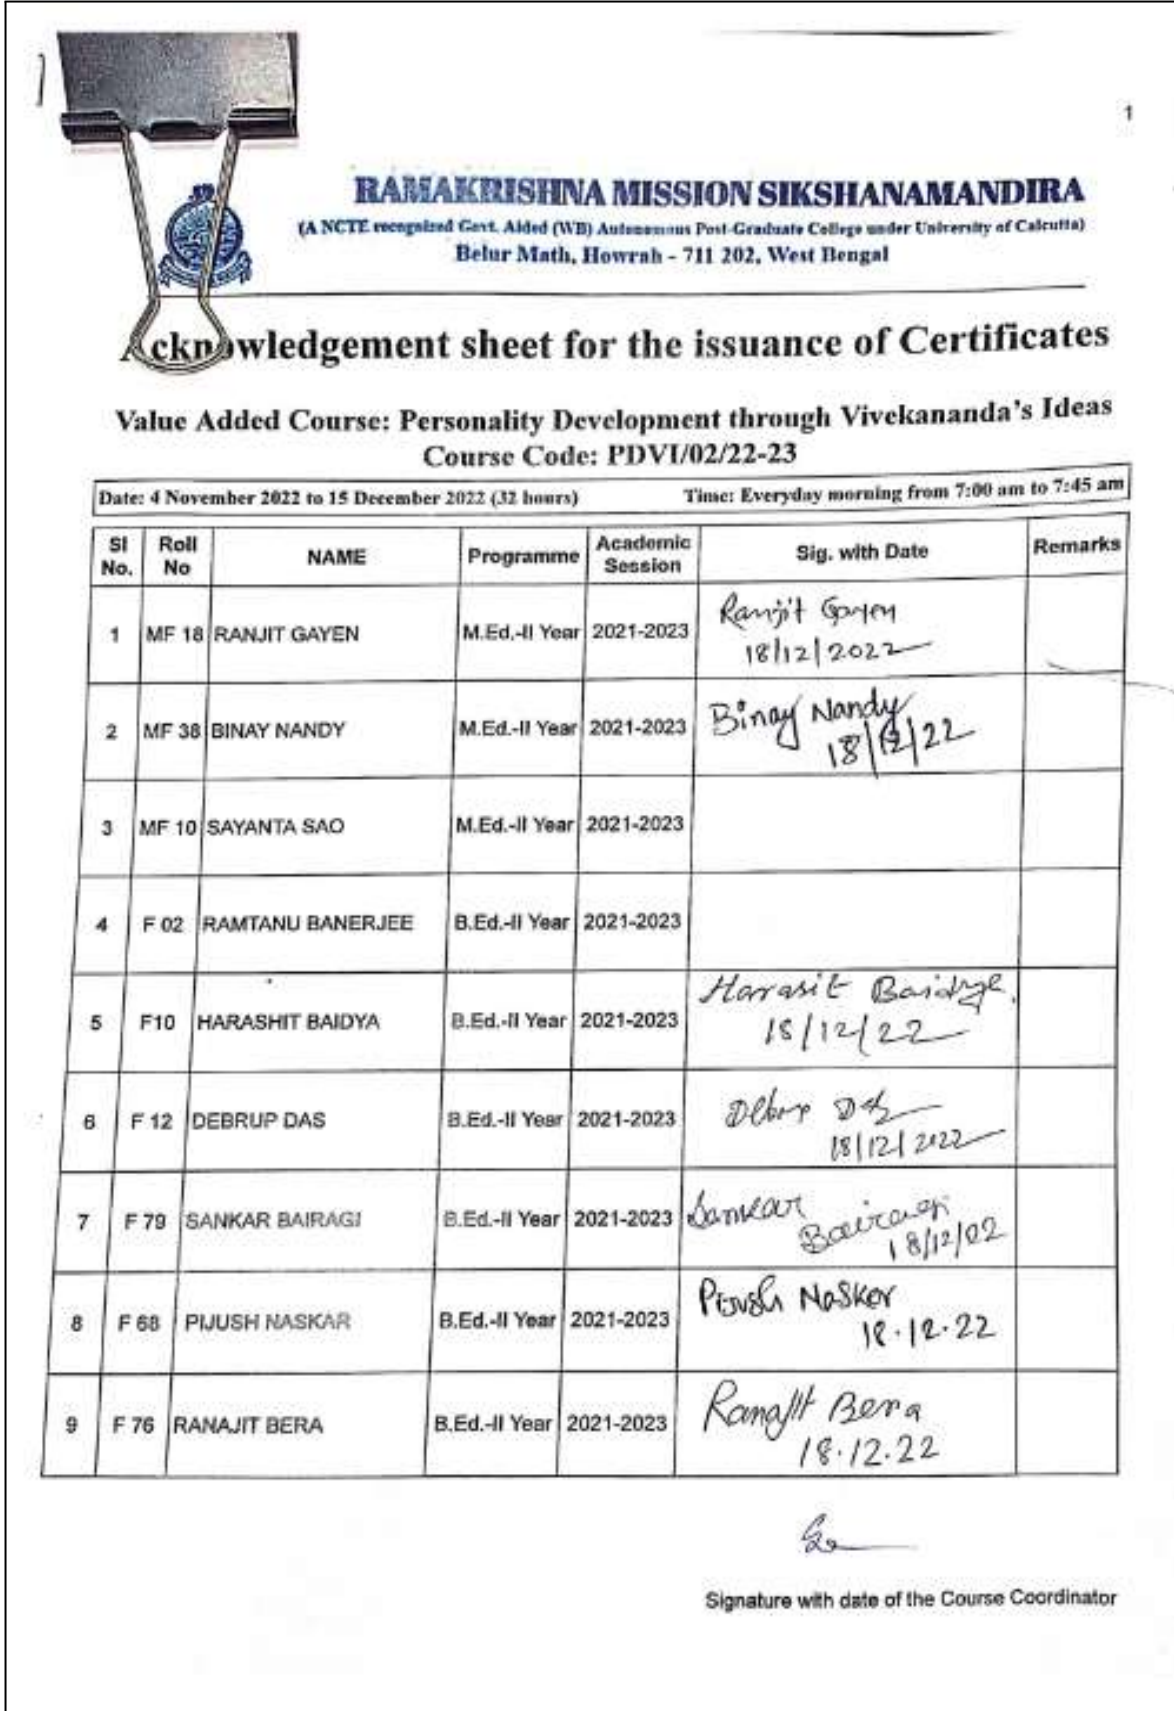 1
RAMAKRISHNA MISSION SIKSHANAMANDIRA
(A NCTE recognized Govt. Aided (WB) Autonomous Post-Graduate College under University of Calcutta)
Belur Math, Howrah - 711 202, West Bengal
Acknowledgement sheet for the issuance of Certificates
Value Added Course: Personality Development through Vivekananda's Ideas
Course Code: PDVI/02/22-23
Date: 4 November 2022 to 15 December 2022 (32 hours) Time: Everyday morning from 7:00 am to 7:45 am
Sl No. Roll No NAME Programme Academic Session Sig. with Date Remarks
1 MF 18 RANJIT GAYEN M.Ed.-II Year 2021-2023 Ranjit Gayen
18/12/2022
2 MF 38 BINAY NANDY M.Ed.-II Year 2021-2023 Binay Nandy
18/12/22
3 MF 10 SAYANTA SAO M.Ed.-II Year 2021-2023
4 F 02 RAMTANU BANERJEE B.Ed.-II Year 2021-2023
5 F10 HARASHIT BAIDYA B.Ed.-II Year 2021-2023 Harasit Baidya
18/12/22
6 F 12 DEBRUP DAS B.Ed.-II Year 2021-2023 Debrup Das
18/12/2022
7 F 79 SANKAR BAIRAGI B.Ed.-II Year 2021-2023 Sankar
Bairagi
18/12/02
8 F 68 PIJUSH NASKAR B.Ed.-II Year 2021-2023 Pijush Naskar
18.12.22
9 F 76 RANAJIT BERA B.Ed.-II Year 2021-2023 Ranajit Bera
18.12.22
Signature with date of the Course Coordinator